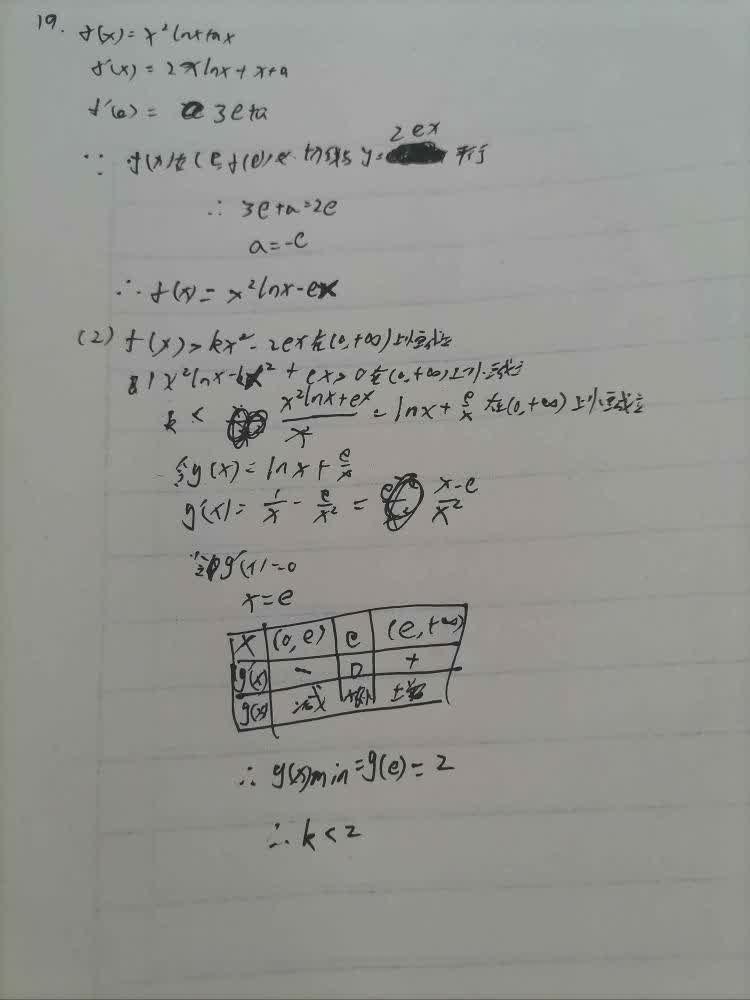 19. f(x)=x²lnx+ax
f'(x)=2xlnx+x+a
f'(e)=3e+a
∵ f(x)在(e,f(e))处切线与y=2ex平行
∴ 3e+a=2e
a=-e
∴ f(x)=x²lnx-ex
(2) f(x)>kx²-2ex在(0,+∞)上恒成立
即x²lnx-kx²+ex>0在(0,+∞)上恒成立
k< x²lnx+ex/x² =lnx+e/x 在(0,+∞)上恒成立
令g(x)=lnx+e/x
g'(x)=1/x-e/x²= x-e/x²
g'(x)=0
x=e
x (0,e) e (e,+∞)
g'(x) - 0 +
g(x)
∴ g(x)min=g(e)=2
∴ k<2